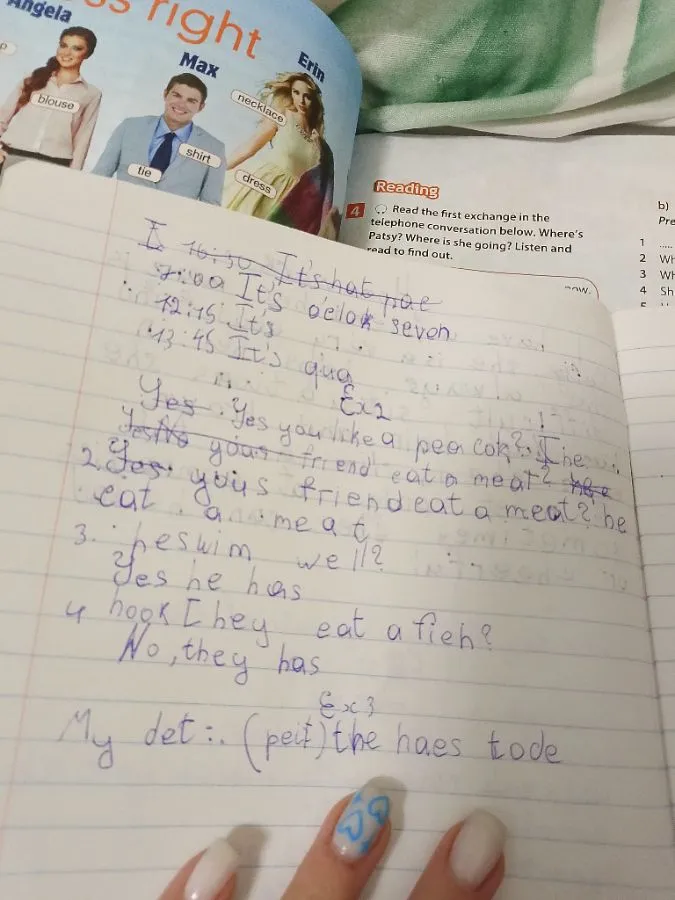 Angela
ss right
Max
Erin
blouse
necklace
shirt
tie
dress
Reading
4 Read the first exchange in the
telephone conversation below. Where's
Patsy? Where is she going? Listen and
read to find out.
now.
b)
Pre
1 .....
2 Wh
3 Wh
4 Sh
5
I 16:30 It's hat pae
7:00 It's oclok seven
12:15 It's
13:45 It's qua
Ex2
Yes. Yes you like a pea cok? I he
Yes No your friend eat a meat? he
2. Yes. yous friend eat a meat? he
eat a meat
3. heswim well?
Yes he has
4 hook They eat a fieh?
No, they has
Ex3
My det: (peit) the haes tode